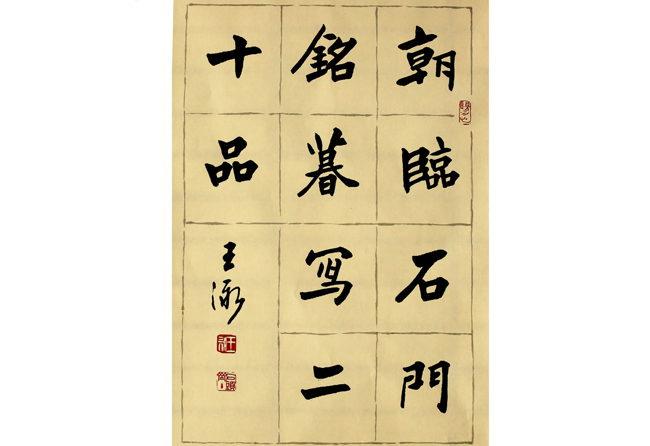 朝臨石門
銘暮写二
十品
王